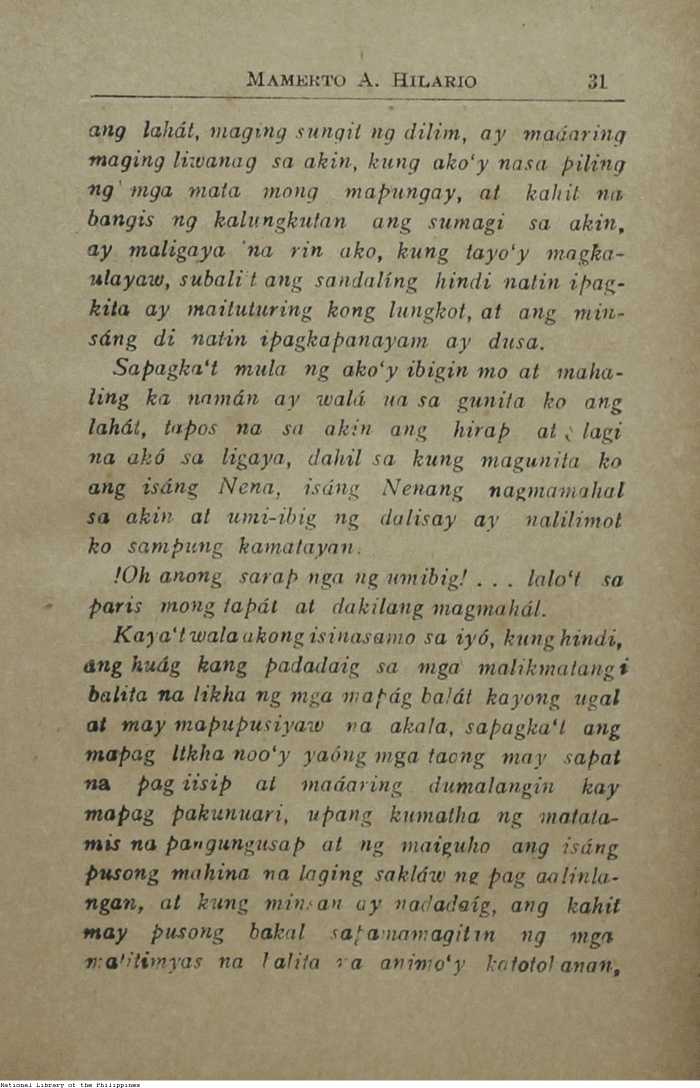 MAMERTO A. HILARIO 31
ang lahát, maging sungit ng dilim, ay maáaring
maging liwanag sa akin, kung ako‘y nasa piling
ng mga mata mong mapungay, at kahit na
bangis ng kalungkutan ang sumagi sa akin,
ay maligaya na rin ako, kung tayo‘y magka-
ulayaw, subali't ang sandalíng hindi natin ipag-
kita ay maituturing kong lungkot, at ang min-
sáng di natin ipagkapanayam ay dusa.
Sapagka‘t mula ng ako‘y ibigin mo at maha-
ling ka namán ay walá na sa gunita ko ang
lahát, tapos na sa akin ang hirap at lagi
na akó sa ligaya, dahil sa kung magunita ko
ang isáng Nena, isáng Nenang nagmamahal
sa akin at umi-ibig ng dalisay ay nalilimot
ko sampung kamatayan.
!Oh anong sarap nga ng umibig! . . . lalo‘t sa
paris mong tapát at dakilang magmahál.
Kaya‘t wala akong isinasamo sa iyó, kung hindi,
ang huág kang padadaig sa mga malikmatang i
balita na likha ng mga mapág balát kayong ugal
at may mapupusiyaw na akala, sapagka‘t ang
mapag ltkha noo‘y yaóng mga taong may sapat
na pag iisip at maáaring dumalangin kay
mapag pakunuari, upang kumatha ng matata-
mis na pangungusap at ng maiguho ang isáng
pusong mahina na laging sakláw ng pag aalinla-
ngan, at kung minsan ay nadadaig, ang kahit
may pusong bakal sa ng mga
na balita na animo‘y katotohanan,
National Library of the Philippines